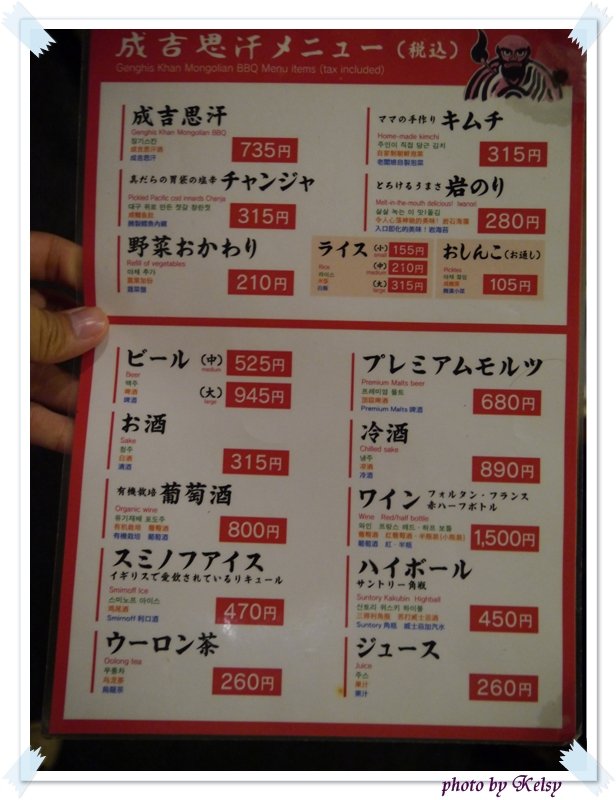 成吉思汗メニュー（税込）
Genghis Khan Mongolian BBQ Menu items (tax included)
成吉思汗
Genghis Khan Mongolian BBQ
징기스칸
成吉思汗
735円
ママの手作り キムチ
Home-made kimchi
주인이 직접 담근 김치
自家制朝鲜泡菜
老闆娘自製泡菜
315円
真だらの胃袋の塩辛 チャンジャ
Pickled Pacific cod innards Chanja
대구 위로 만든 젓갈 창란젓
醃製鱈魚內臟
315円
とろけるうまさ 岩のり
Melt-in-the-mouth delicious! Iwanori
살살 녹는 이 맛!돌김
入口即化的美味！岩海苔
280円
野菜おかわり
Refill of vegetables
야채 추가
蔬菜加份
210円
ライス（小）155円
small
（中）210円
medium
（大）315円
large
Rice
라이스
米饭
白飯
おしんこ（お通し）
Pickles
야채 절임
醃菜小菜
105円
ビール（中）525円
medium
Beer
맥주
啤酒
啤酒
（大）945円
large
プレミアムモルツ
Premium Malts beer
프레미엄 몰트
顶级啤酒
Premium Malts 啤酒
680円
お酒
Sake
청주
日酒
清酒
315円
冷酒
Chilled sake
냉주
凉酒
冷酒
890円
有機栽培 葡萄酒
Organic wine
유기재배 포도주
有机栽培 葡萄酒
有機栽培 葡萄酒
800円
ワイン フォルタン・フランス
赤ハーフボトル
Wine Red/half bottle
와인 프랑스 레드・하프 보틀
葡萄酒 红葡萄酒・半瓶装(小瓶装)
葡萄酒 紅・半瓶
1,500円
スミノフアイス
イギリスで愛飲されているリキュール
Smirnoff Ice
스미노프 아이스
鸡尾酒
Smirnoff 利口酒
470円
ハイボール
サントリー角瓶
Suntory Kakubin Highball
산토리 위스키 하이볼
三得利角瓶 苏打威士忌酒
Suntory 角瓶 威士忌加汽水
450円
ウーロン茶
Oolong tea
우롱차
乌龙茶
烏龍茶
260円
ジュース
Juice
주스
果汁
果汁
260円
photo by Kelsy